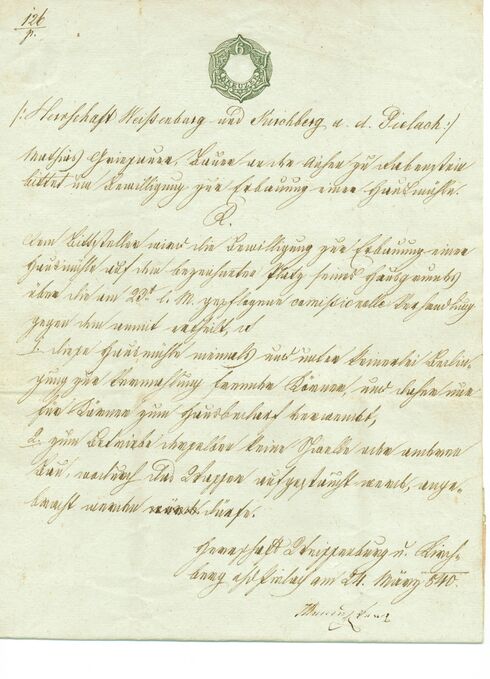 126
p.
6
KREUZER
/: Herrschaft Weißenburg und Kirchberg a. d. Pielach :/
Mathias Griessauer, Bauer an der Aichen zu Rabenstein
bittet um Bewilligung zur Erbauung einer Hausmühle.
D.
Dem Bittsteller wird die Bewilligung zur Erbauung einer
Hausmühle auf dem bezeichneten Platz seines Hausgrundes
über die am 23t. l. M. gepflogene comissionelle Verhandlung
gegen dem anmit ertheilt, d
1. diese Hausmühle niemals und unter keinerlei Beding-
ung zur Vermahlung fremder Körner, und daher nur
für Körner zum Hausbedarf verwendet,
2. zum Betriebe derselben keine Schwelle oder anderer
Bau, wodurch das Wasser aufgestaucht werde, ange-
bracht werden dürfe.
Herrschaft Weissenburg u. Kirch-
berg a/d Pielach am 24. März 840.